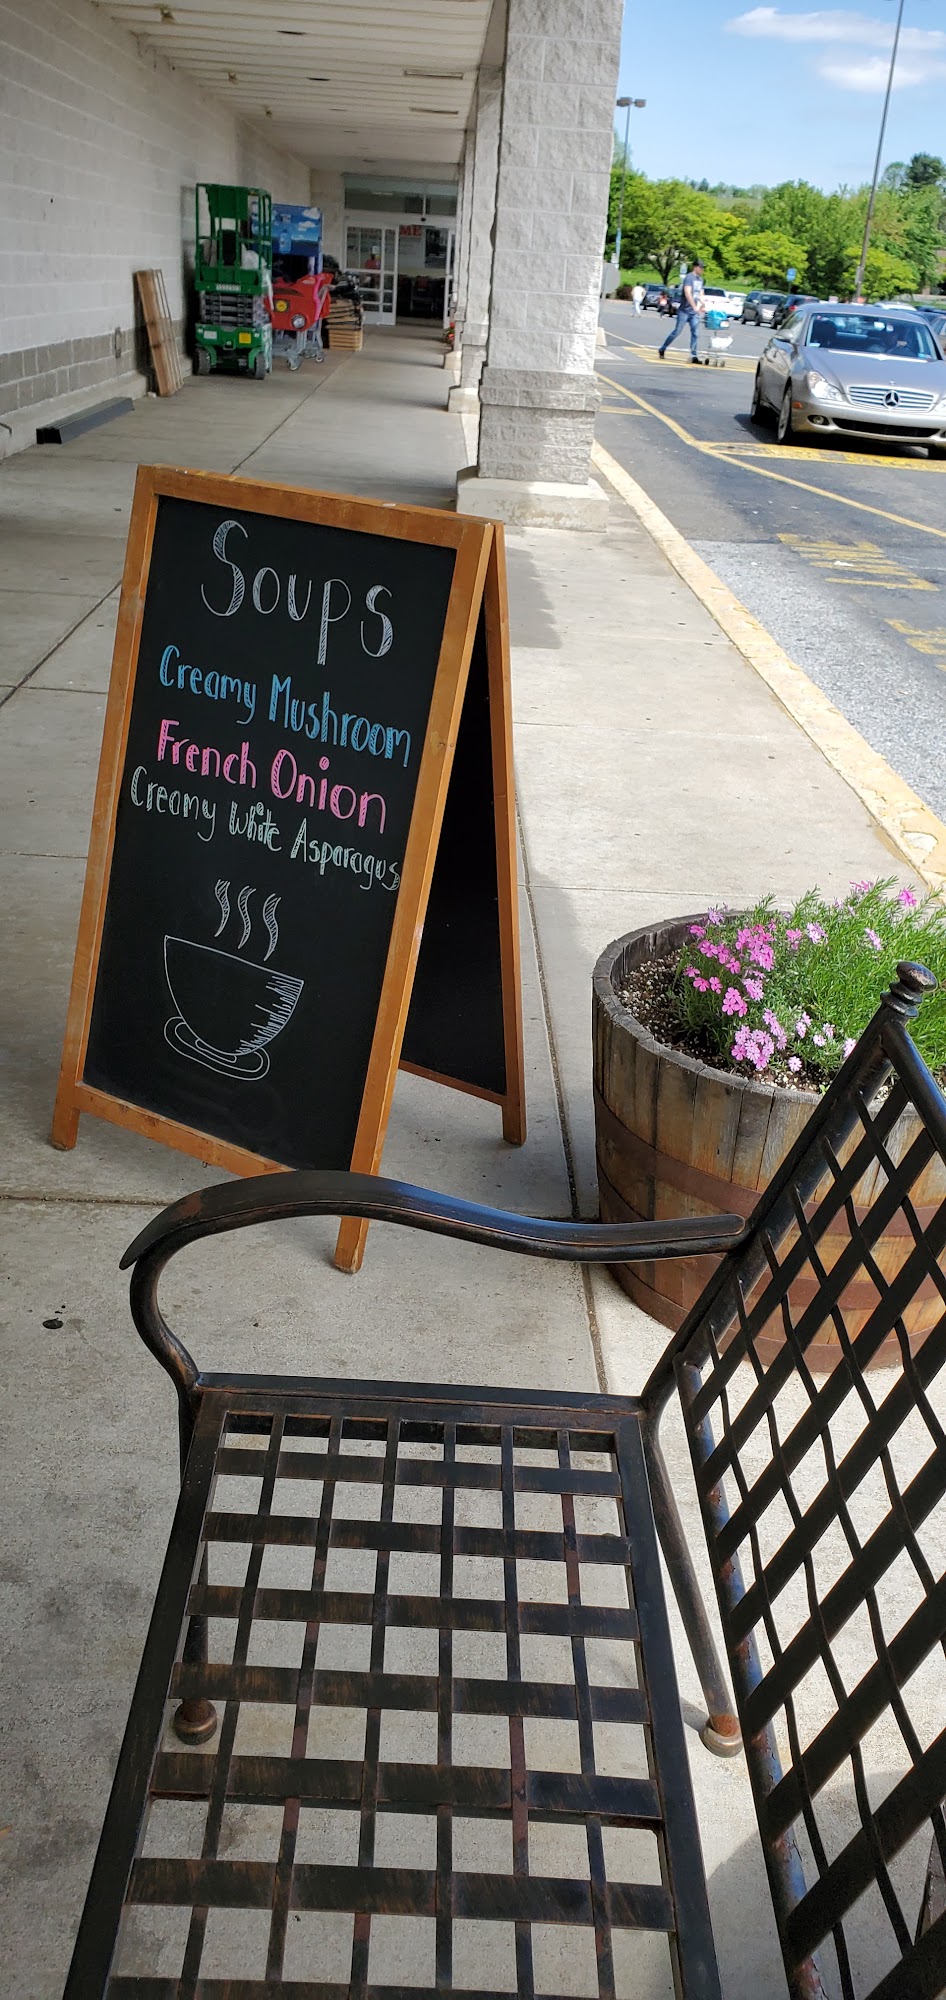 Soups
Creamy Mushroom
French Onion
Creamy White Asparagus
ME